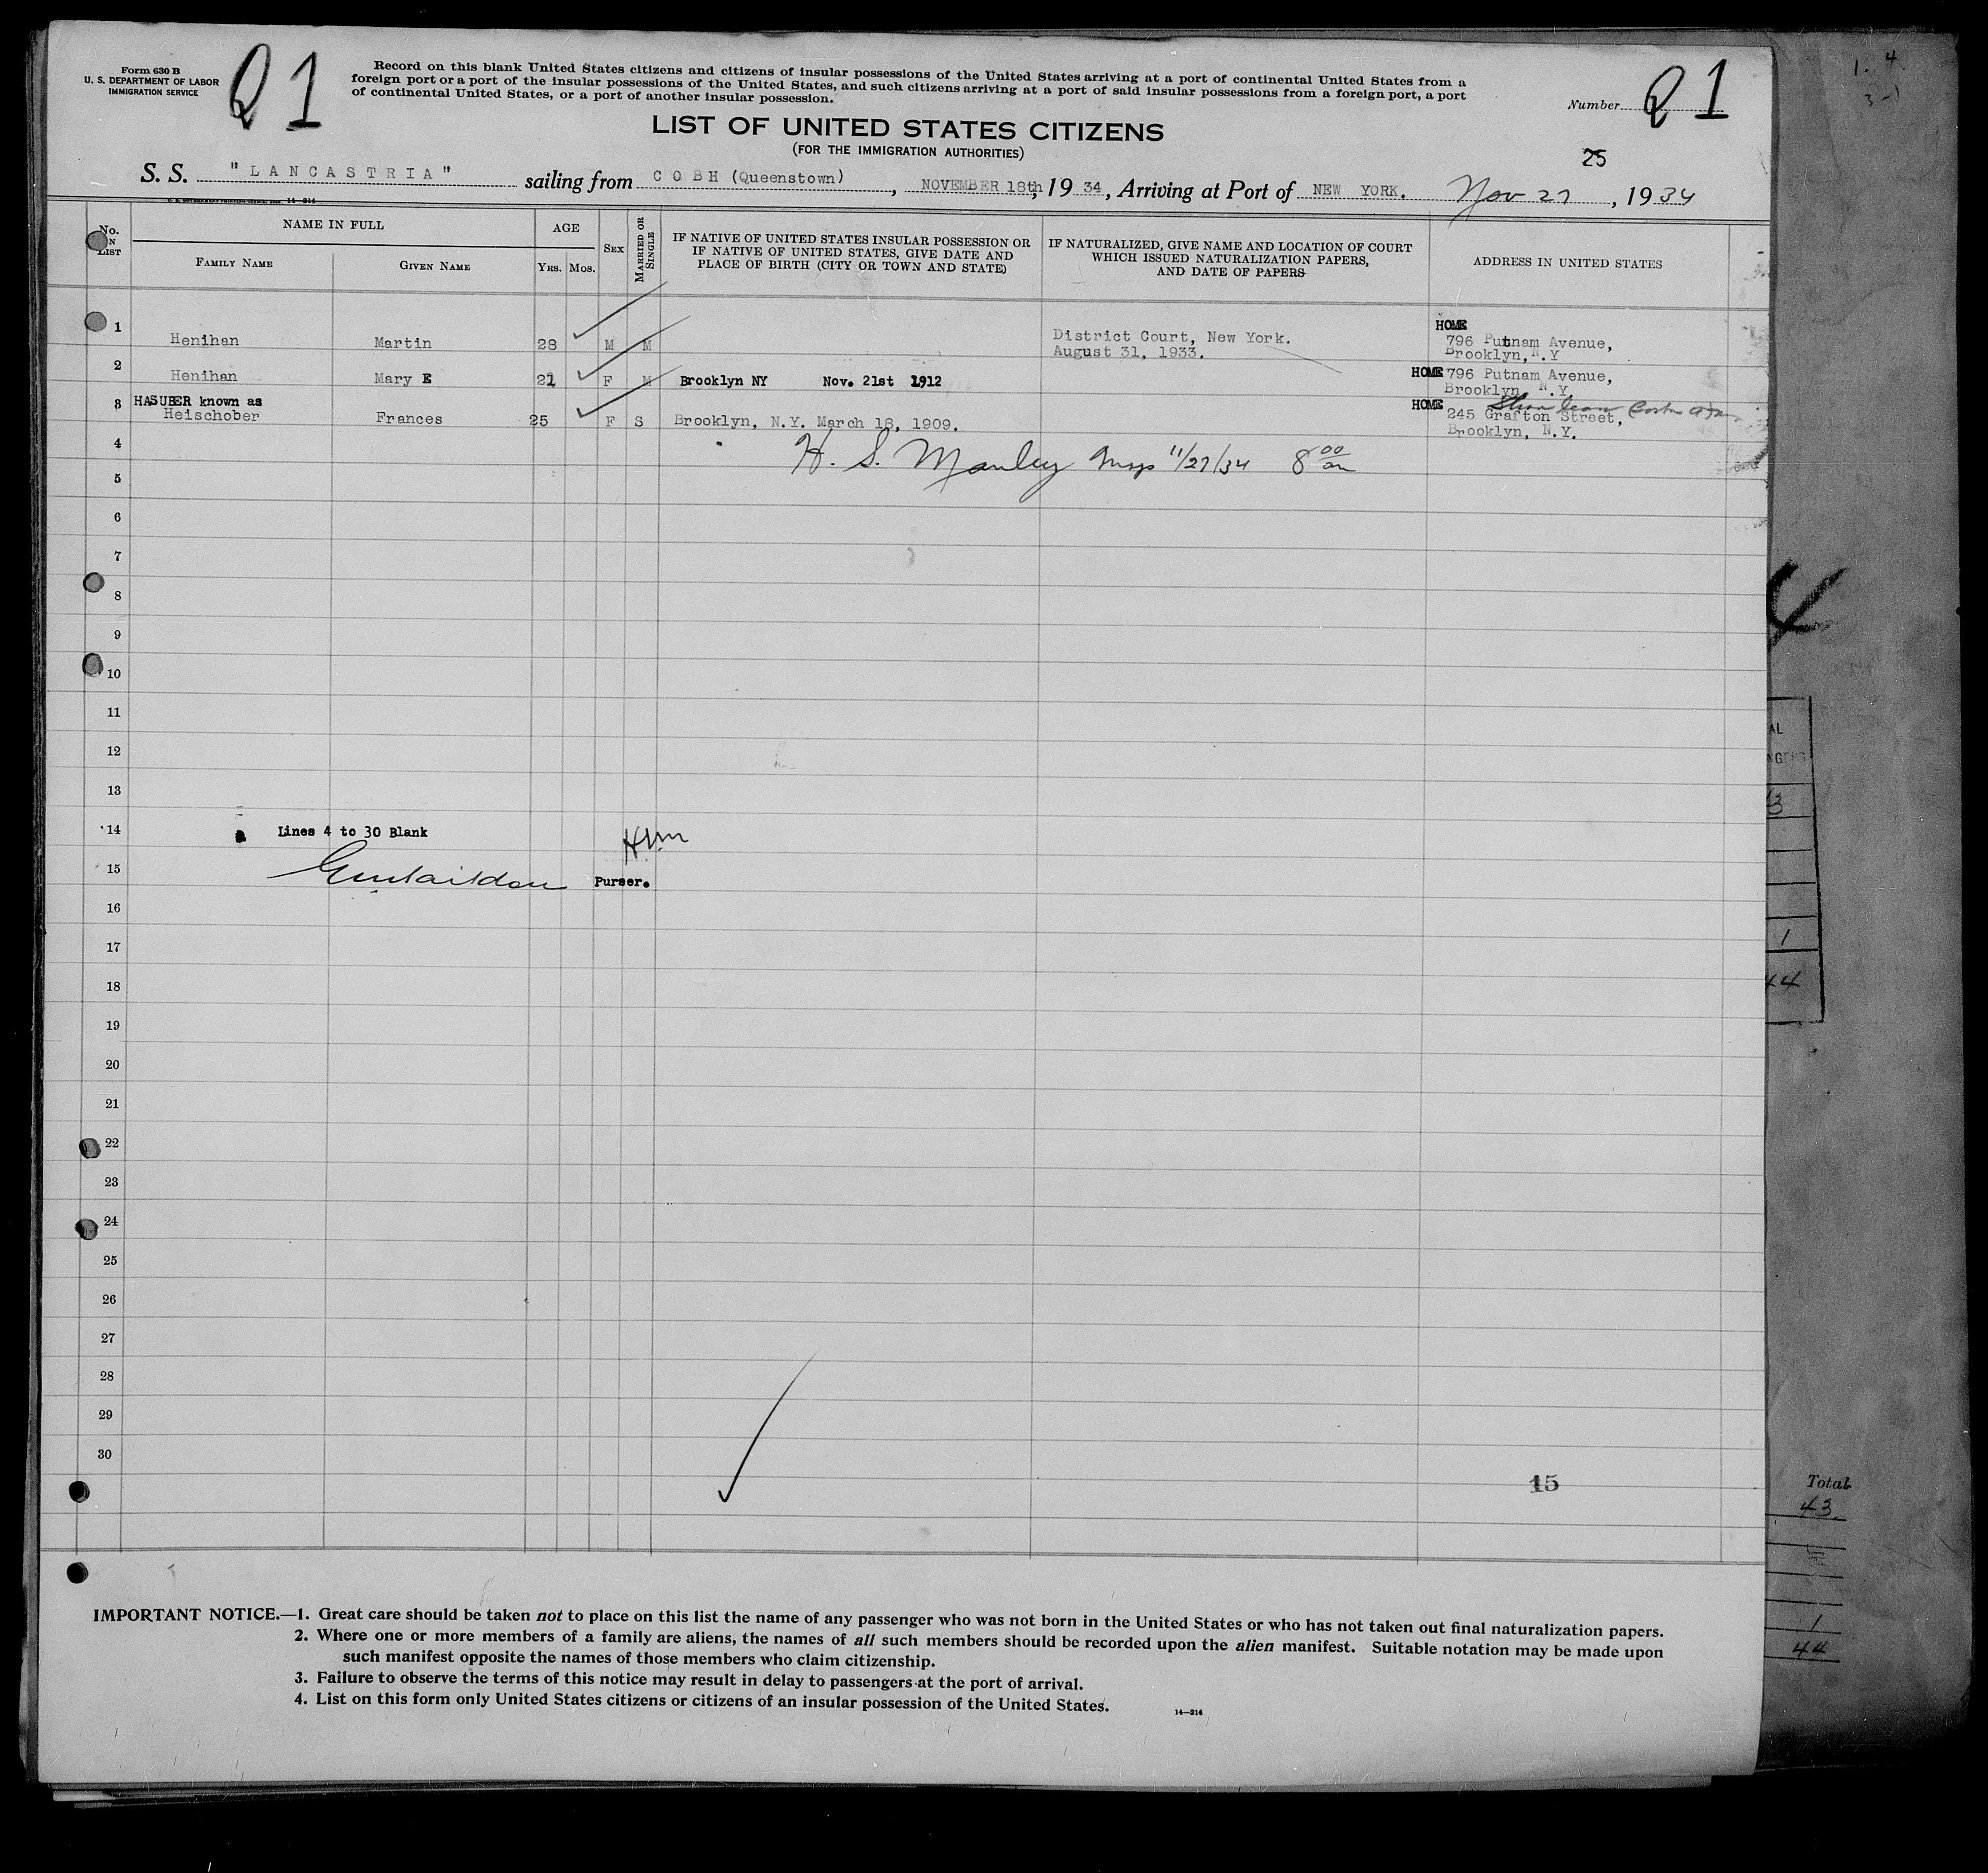 Form 630 B
U. S. DEPARTMENT OF LABOR
IMMIGRATION SERVICE
Q1
Record on this blank United States citizens and citizens of insular possessions of the United States arriving at a port of continental United States from a
foreign port or a port of the insular possessions of the United States, and such citizens arriving at a port of said insular possessions from a foreign port, a port
of continental United States, or a port of another insular possession.
Number Q1
LIST OF UNITED STATES CITIZENS
(FOR THE IMMIGRATION AUTHORITIES)
25
S. S. "LANCASTRIA" sailing from COBH (Queenstown), NOVEMBER 18th, 1934, Arriving at Port of NEW YORK. Nov 27, 1934
No. on List
NAME IN FULL
Family Name
Given Name
AGE
Yrs. Mos.
Sex
Married or Single
IF NATIVE OF UNITED STATES INSULAR POSSESSION OR
IF NATIVE OF UNITED STATES, GIVE DATE AND
PLACE OF BIRTH (CITY OR TOWN AND STATE)
IF NATURALIZED, GIVE NAME AND LOCATION OF COURT
WHICH ISSUED NATURALIZATION PAPERS,
AND DATE OF PAPERS
ADDRESS IN UNITED STATES
1 Henihan Martin 28 M M District Court, New York.
August 31, 1933.
HOME
796 Putnam Avenue,
Brooklyn, N.Y
2 Henihan Mary E 21 F M Brooklyn NY Nov. 21st 1912
HOME 796 Putnam Avenue,
Brooklyn, N.Y.
3 HASUBER known as
Heischober Frances 25 F S Brooklyn, N.Y. March 18, 1909.
HOME
245 Grafton Street,
Brooklyn, N.Y.
4
H. S. Manley Insp 11/27/34 8 00 am
5
6
7
8
9
10
11
12
13
14 Lines 4 to 30 Blank
15 Purser.
16
17
18
19
20
21
22
23
24
25
26
27
28
29
30
15
Total
43
1
44
IMPORTANT NOTICE.—1. Great care should be taken not to place on this list the name of any passenger who was not born in the United States or who has not taken out final naturalization papers.
2. Where one or more members of a family are aliens, the names of all such members should be recorded upon the alien manifest. Suitable notation may be made upon
such manifest opposite the names of those members who claim citizenship.
3. Failure to observe the terms of this notice may result in delay to passengers at the port of arrival.
4. List on this form only United States citizens or citizens of an insular possession of the United States.
14—314